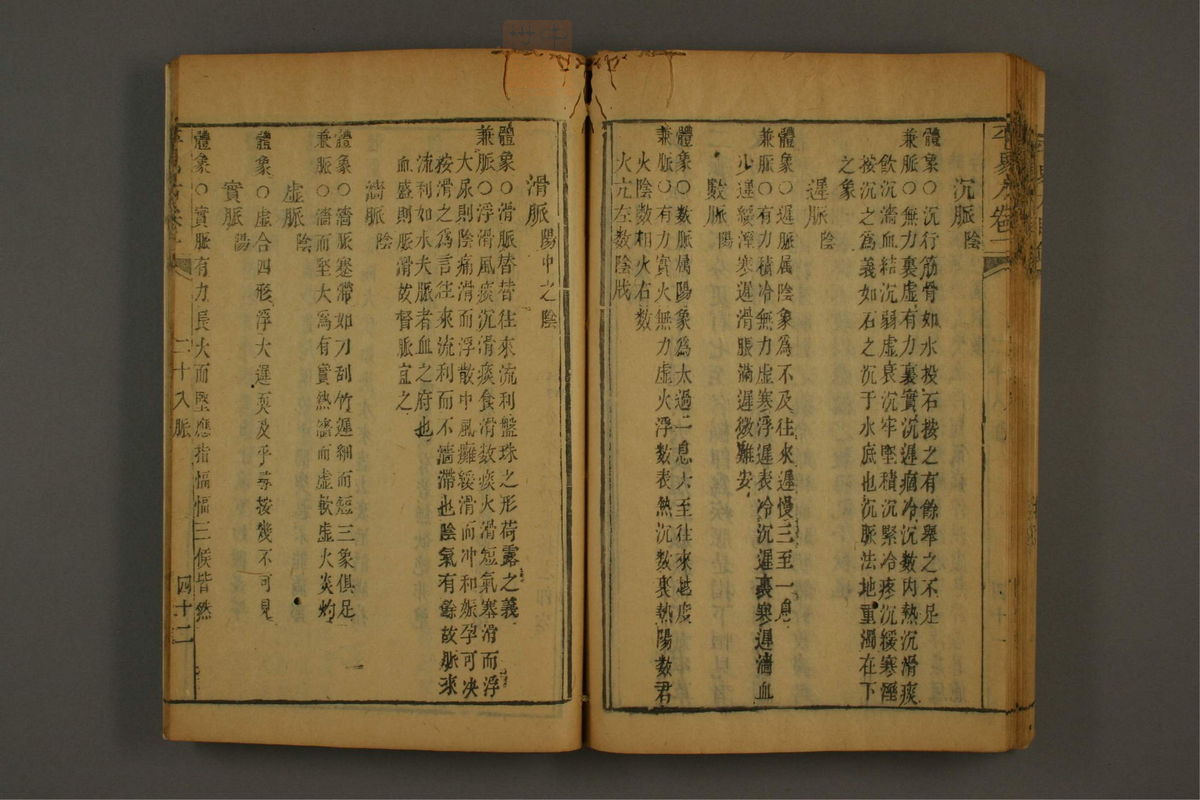 沉脈 陰
體象○沉行筋骨如水投石按之有餘舉之不足
兼脈○無力裏虛有力裏實沉遲痼冷沉數內熱沉滑痰
飲沉濇血結沉弱虛衰沉牢堅積沉緊冷疼沉緩寒溼
按沉之爲義如石之沉于水底也沉脈法地重濁在下
之象
遲脈 陰
體象○遲脈属陰象爲不及往來遲慢三至一息
兼脈○有力積冷無力虛寒浮遲表冷沉遲裏寒遲濇血
少遲緩溼寒遲滑脹滿遲微難安
數脈 陽
體象○數脈属陽象爲太過一息六至往來越度
兼脈○有力實火無力虛火浮數表熱沉數裏熱陽數君
火陰數相火右數
火亢左數陰戕
滑脈 陽中之陰
體象○滑脈替替往來流利盤珠之形荷露之義
兼脈○浮滑風痰沉滑痰食滑數痰火滑短氣塞滑而浮
大尿則陰痛滑而浮散中風癱緩滑而冲和娠孕可决
按滑之爲言往來流利而不濇滯也陰氣有餘故脈來
流利如水夫脈者血之府也
血盛則脈滑故腎脈宜之
濇脈 陰
體象○濇脈蹇滯如刀刮竹遲細而短三象俱足
兼脈○濇而堅大爲有實熱濇而虛軟虛火炎灼
虛脈 陰
體象○虛合四形浮大遲耎及乎尋按幾不可見
實脈 陽
體象○實脈有力長大而堅應指愊愊三候皆然
二十八脈
四十二